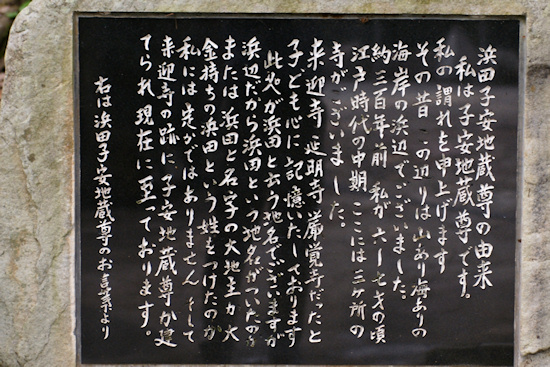 浜田子安地蔵尊の由来
私は子安地蔵尊です。
私の謂れを申上げます
その昔この辺りは山あり海ありの
海岸の浜辺でございました。
約三百年前、私が六〜七才の頃
江戸時代の中期、ここには三ヶ所の
寺がございました。
来迎寺、延明寺、蓮覚寺だったと
子ども心に記憶いたしております
此処が浜田と云う地名でございますが
浜辺だから浜田という地名がついたのか
または浜田と名字の大地主か大
金持ちの浜田という姓をつけたのか
私には定かではありません そして
来迎寺の跡に子安地蔵尊が建
てられ現在に至っております。
右は浜田子安地蔵尊のお言葉より